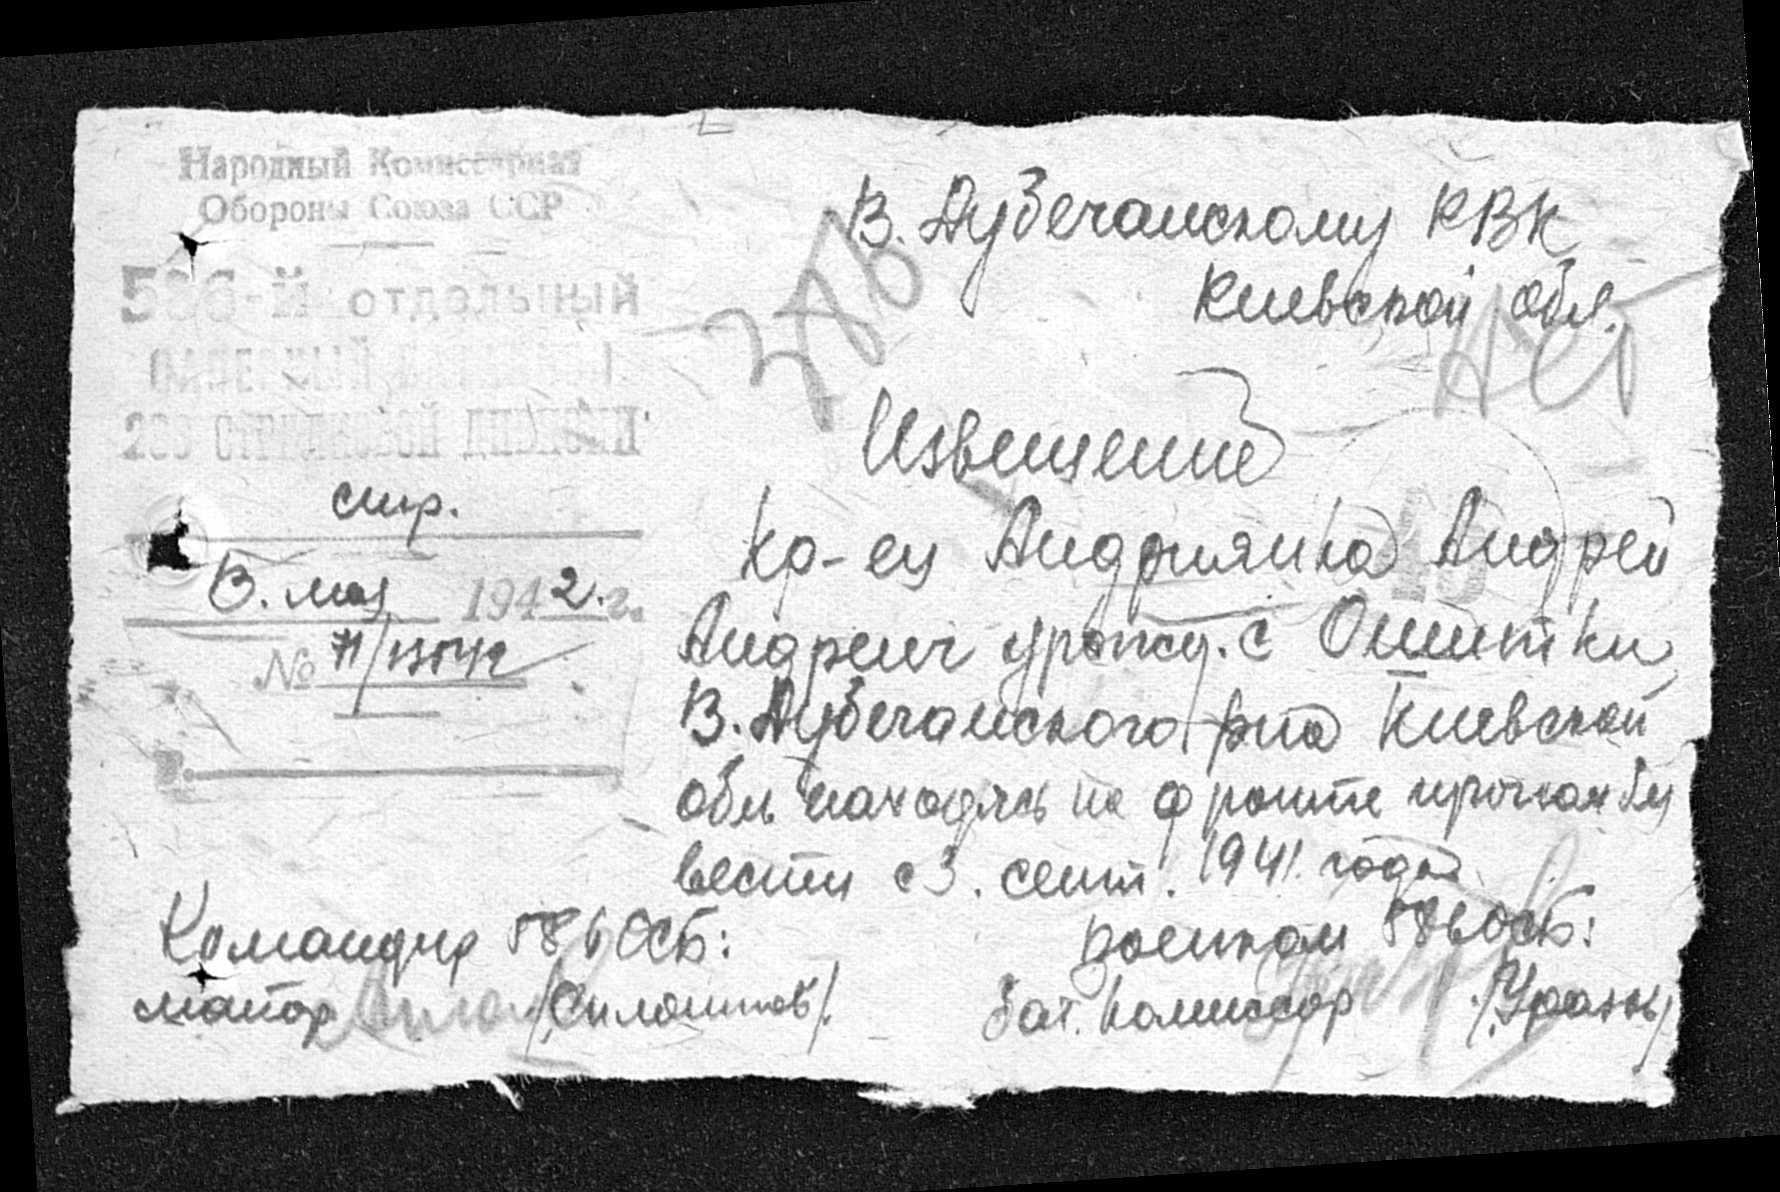 Народный Комиссариат
Обороны Союза ССР
586-й отдельный
САПЕРНЫЙ БАТАЛЬОН
СТРЕЛКОВОЙ ДИВИЗИИ
стр.
В. мая 1942.г.
№
г.
В. Дубечанскому РВК
Киевской обл.
Извещение
Кр-ец Андрияка Андрей
Андреич урожд. с Ошитки
В. Дубечанского р-на Киевской
обл находясь на фронте пропал без
вести с 3. сент. 1941. года
Командир 586 ОСБ:
майор
Военком 586 ОСБ:
бат. комиссар